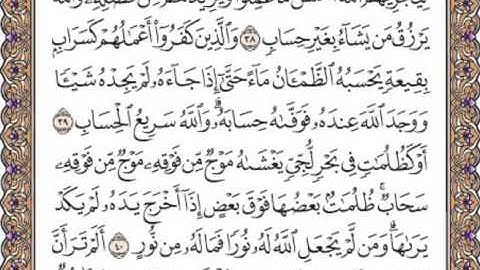 يَرْزُقُ مَن يَشَآءُ بِغَيْرِ حِسَابٍ ٣٨ وَٱلَّذِينَ كَفَرُوٓا۟ أَعْمَٰلُهُمْ كَسَرَابٍۭ
بِقِيعَةٍ يَحْسَبُهُ ٱلظَّمْـَٔانُ مَآءً حَتَّىٰٓ إِذَا جَآءَهُۥ لَمْ يَجِدْهُ شَيْـًٔا
وَوَجَدَ ٱللَّهَ عِندَهُۥ فَوَفَّىٰهُ حِسَابَهُۥ ۗ وَٱللَّهُ سَرِيعُ ٱلْحِسَابِ ٣٩
أَوْ كَظُلُمَٰتٍ فِى بَحْرٍ لُّجِّىٍّ يَغْشَىٰهُ مَوْجٌ مِّن فَوْقِهِۦ مَوْجٌ مِّن فَوْقِهِۦ
سَحَابٌ ۚ ظُلُمَٰتٌۢ بَعْضُهَا فَوْقَ بَعْضٍ إِذَآ أَخْرَجَ يَدَهُۥ لَمْ يَكَدْ
يَرَىٰهَا ۗ وَمَن لَّمْ يَجْعَلِ ٱللَّهُ لَهُۥ نُورًا فَمَا لَهُۥ مِن نُّورٍ ٤٠ أَلَمْ تَرَ أَنَّ